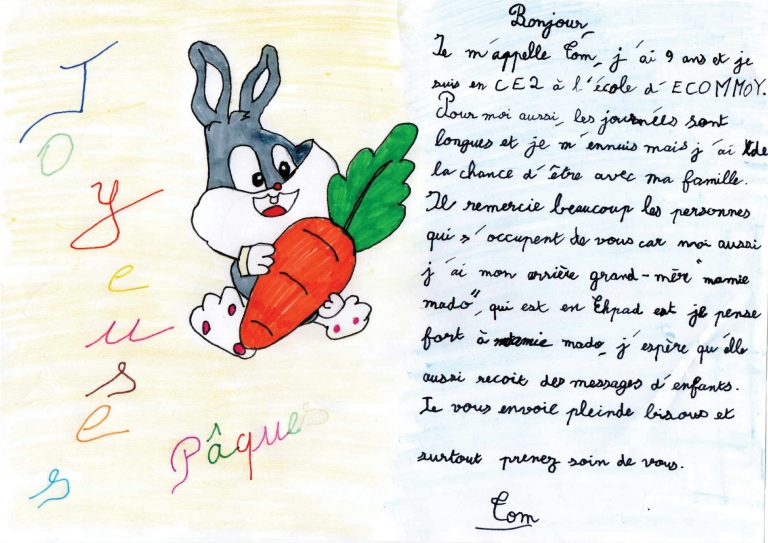 Joyeuses
Pâques
Bonjour,
Je m'appelle Tom, j'ai 9 ans et je
suis en CE2 à l'école d'ECOMMOY.
Pour moi aussi, les journées sont
longues et je m'ennuis mais j'ai
la chance d'être avec ma famille.
Je remercie beaucoup les personnes
qui s'occupent de vous car moi aussi
j'ai mon arrière grand-mèr "mamie
mado", qui est en Ehpad est je pense
fort à mamie mado, j'espère qu'elle
aussi recoit des messages d'enfants.
Je vous envoie pleinde bisous et
surtout prenez soin de vous.
Tom